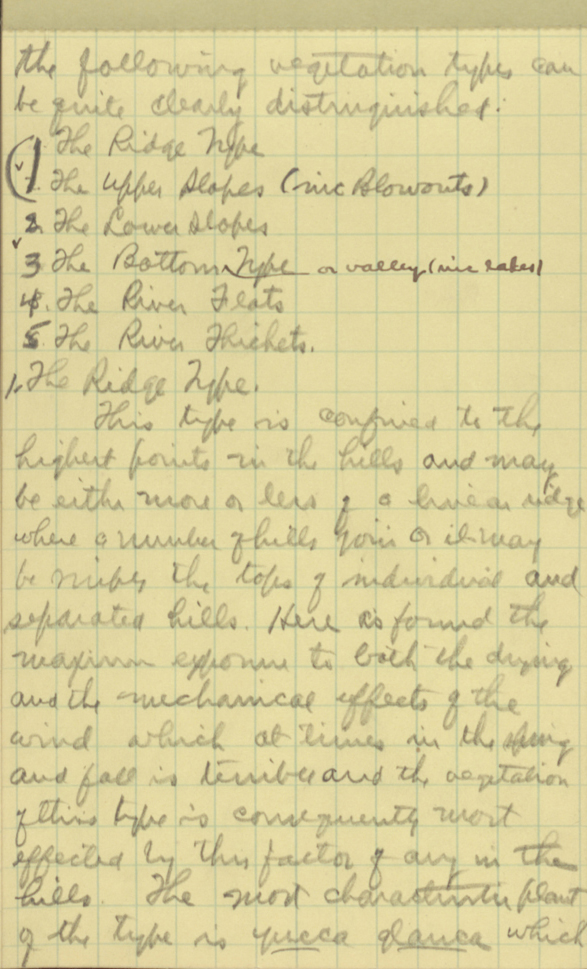 the following vegetation types can
be quite clearly distinguished:
1. The Ridge Type
The Upper Slopes (inc Blowouts)
2. The Lower Slopes
3 The Bottom Type or valley (inc lakes)
4. The River Flats
5. The River Thickets.
1. The Ridge Type.
This type is confined to the
highest points in the hills and may
be either more or less of a linear ridge
where a number of hills join or it may
be simply the tops of individual and
separated hills. Here is found the
maximum exposure to both the drying
and the mechanical effects of the
wind which at times in the spring
and fall is terrible and the vegetation
of this type is consequently most
effected by this factor of any in the
hills. The most characteristic plant
of the type is yucca glauca which